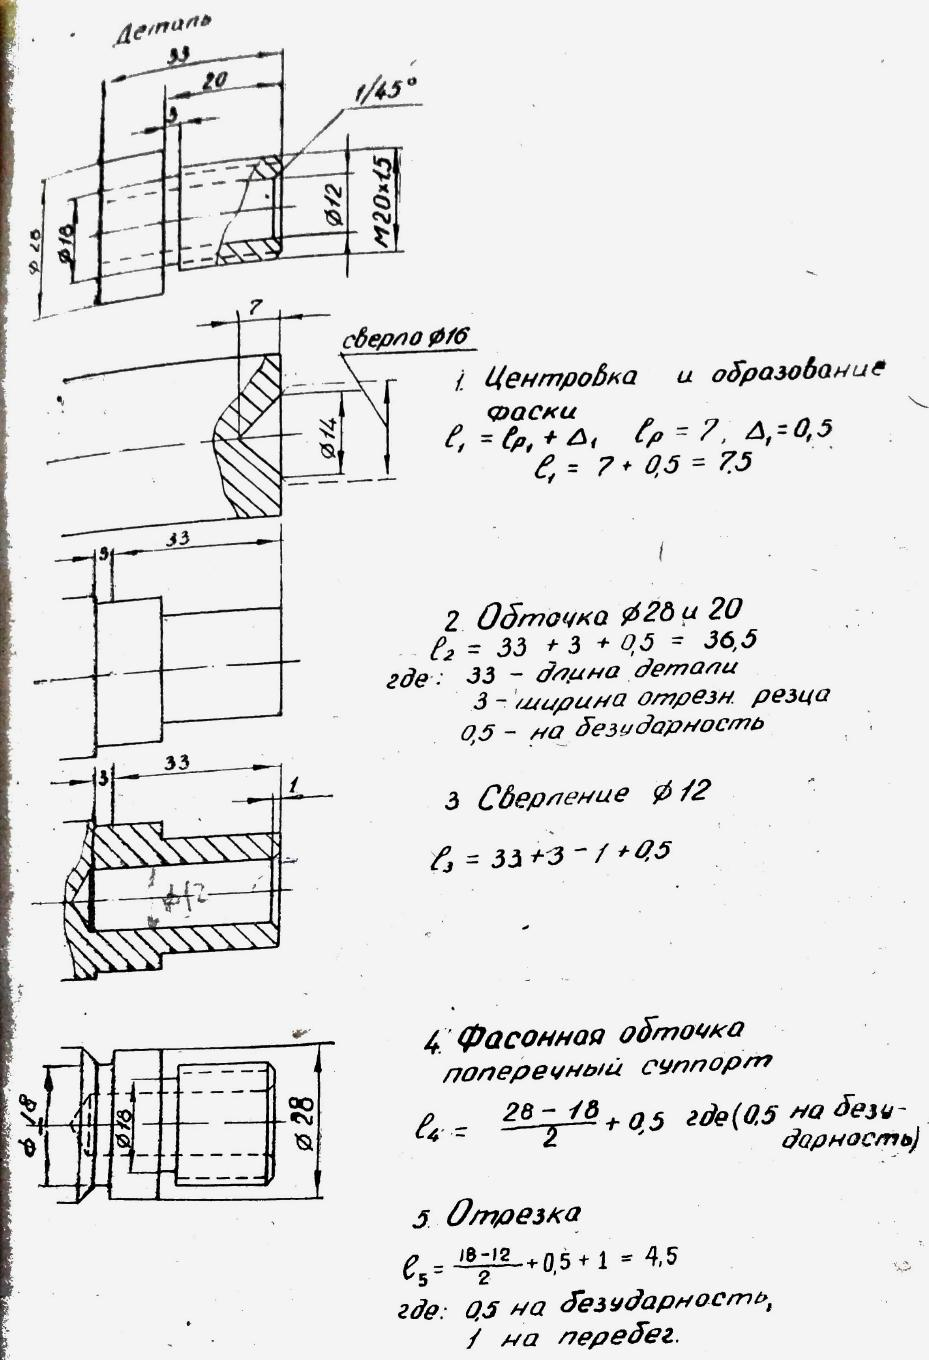 Деталь
33
20
3
1/45°
ф 28
ф18
ф12
М20х1.5
7
сверло ф16
ф14
1. Центровка и образование
фаски
ℓ₁ = ℓр₁ + Δ₁ ℓр = 7, Δ₁ = 0,5
ℓ₁ = 7 + 0,5 = 7.5
3
33
2 Обточка ф28 и 20
ℓ₂ = 33 + 3 + 0,5 = 36,5
где: 33 - длина детали
3 - ширина отрезн. резца
0,5 - на безударность
3
33
1
ф12
3 Сверление ф 12
ℓ₃ = 33+3-1+0,5
ф 18
ф18
ф 28
4. Фасонная обточка
поперечный суппорт
ℓ₄ = (28-18)/2 + 0,5 где (0,5 на безу-
дарность)
5. Отрезка
ℓ₅ = (18-12)/2 + 0,5 + 1 = 4,5
где: 0,5 на безударность,
1 на перебег.